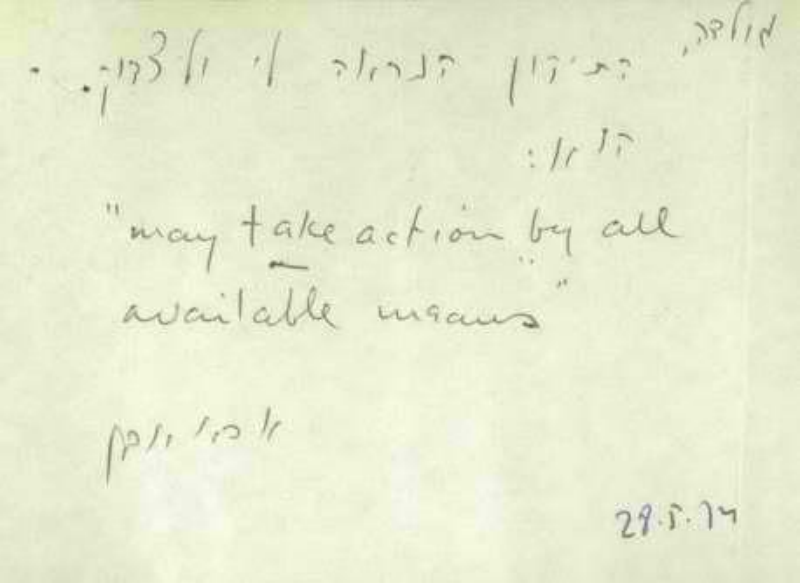 גולדה,
התיקון הנראה לי ולצדוק
הוא:
"may take action by all
available means"
אבא אבן
29.5.74